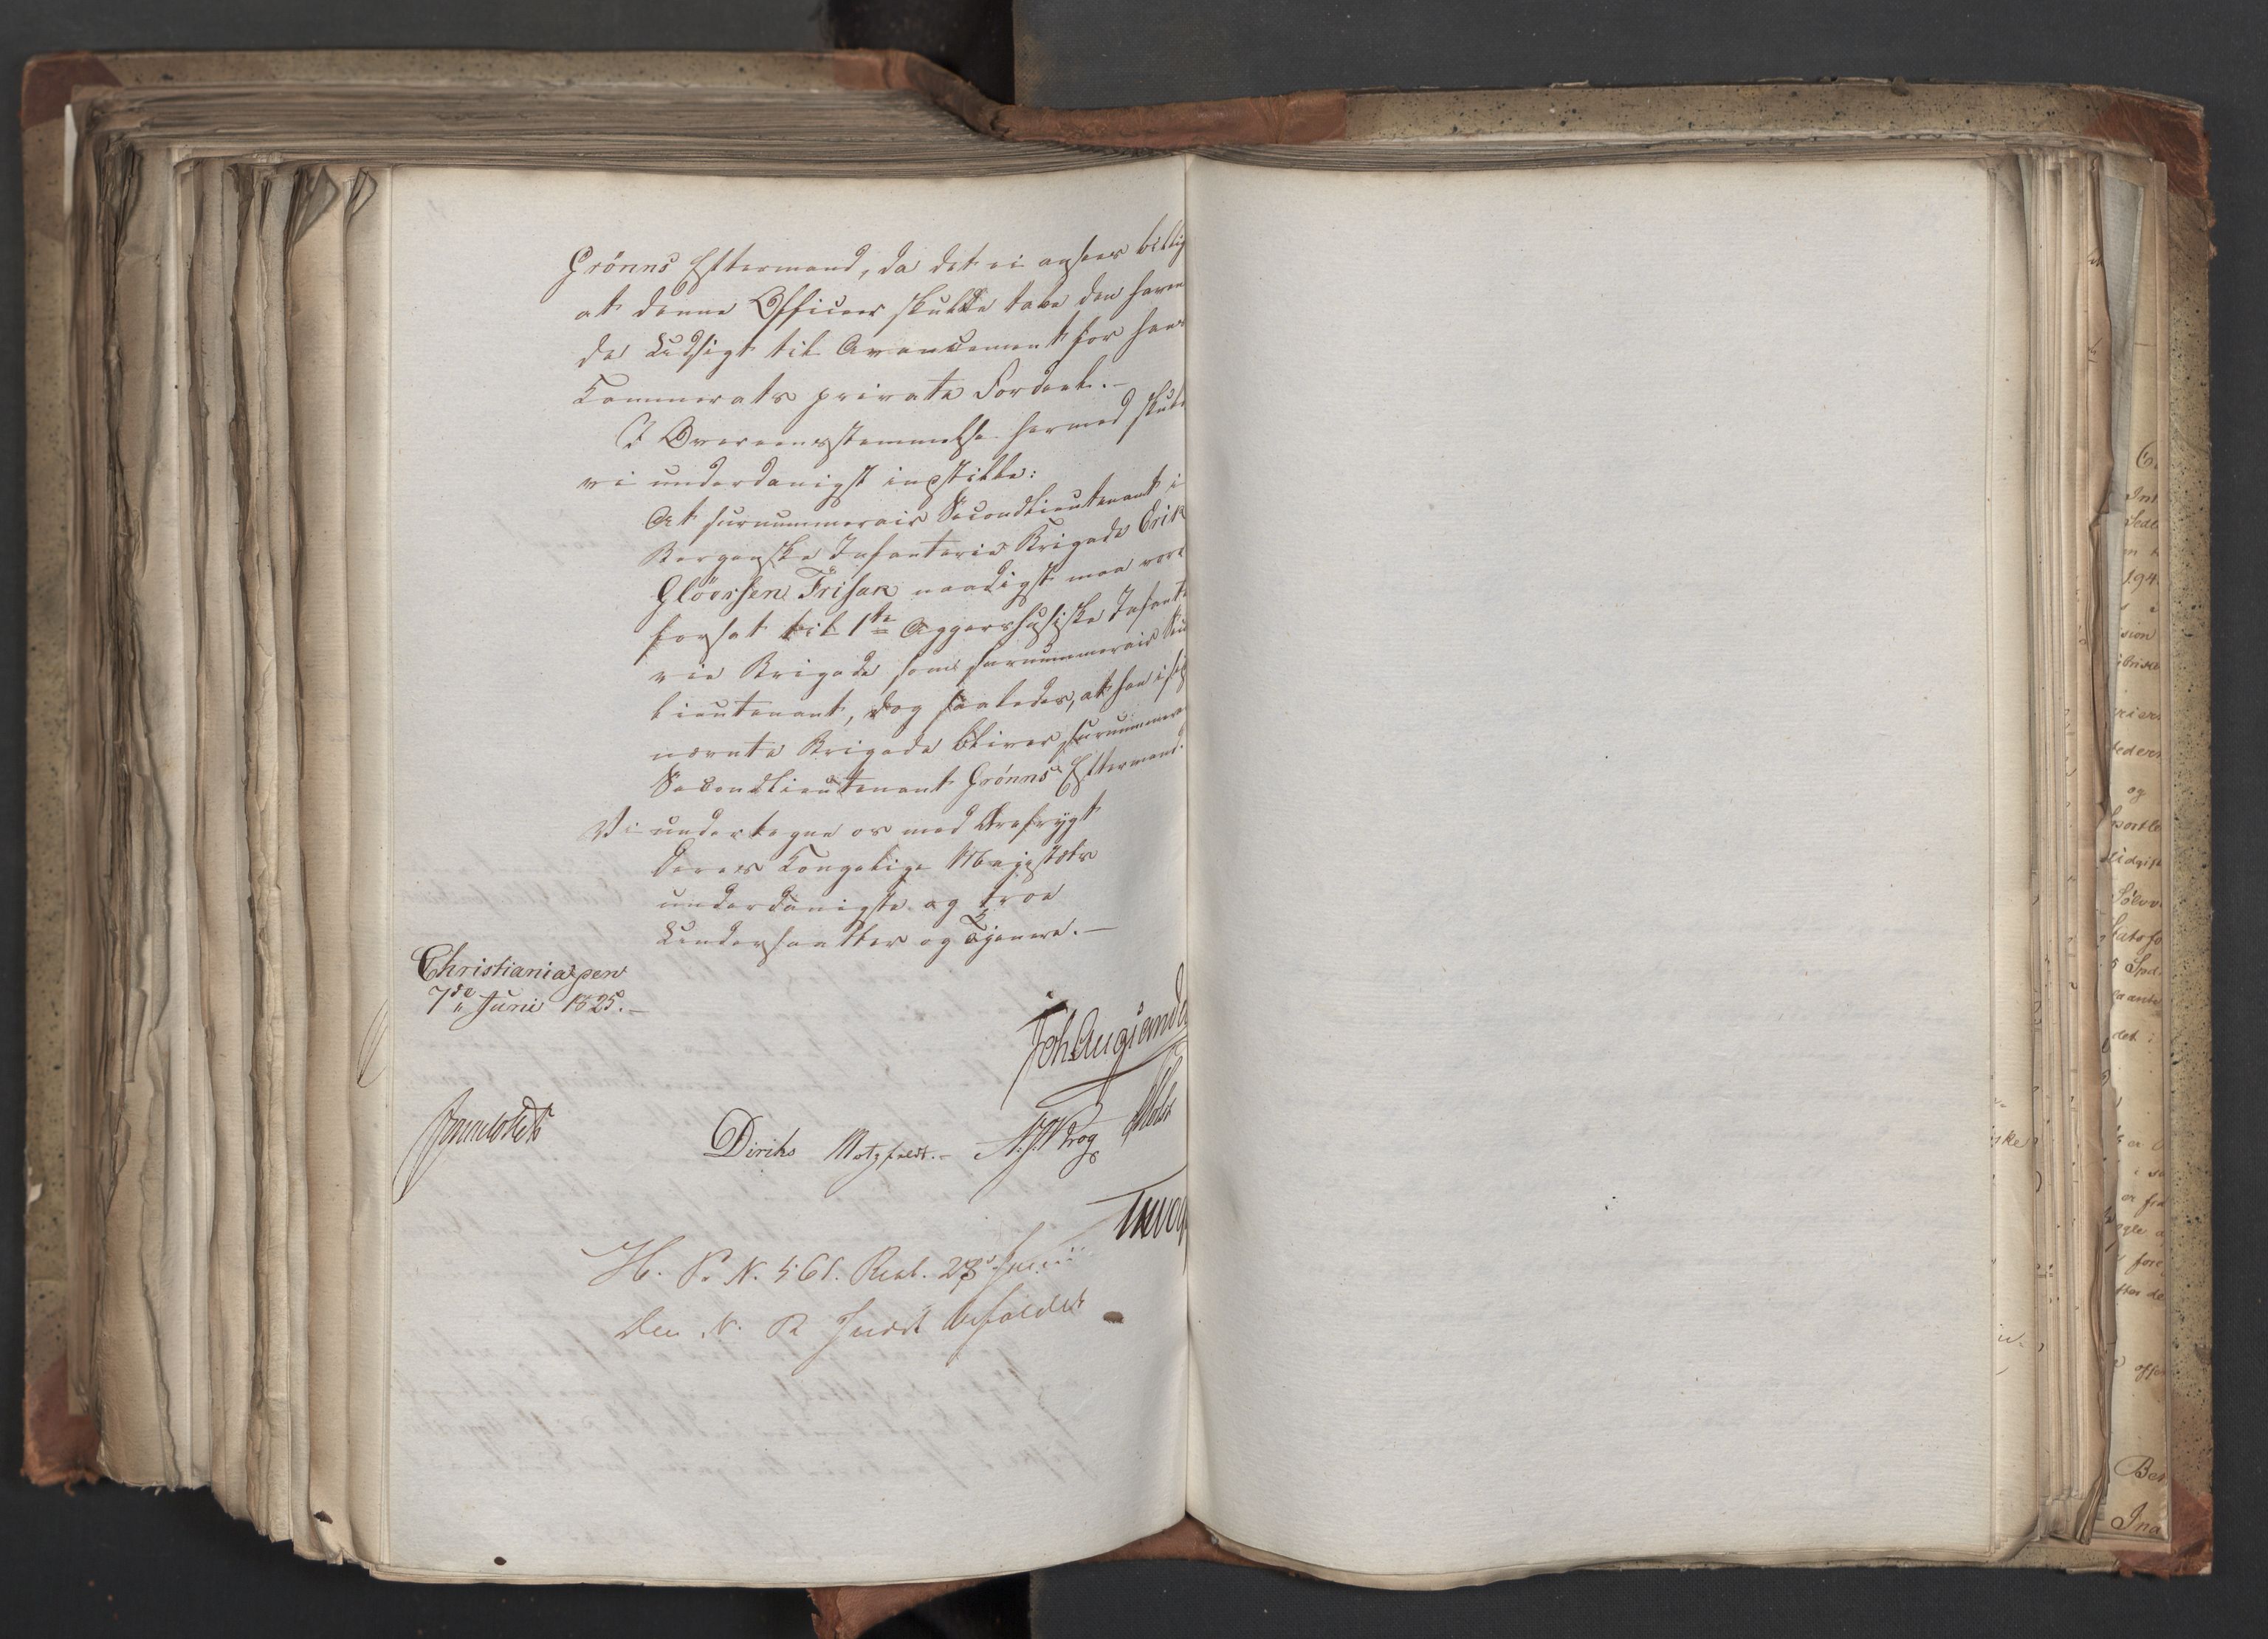 Grönns Eftermand, da det ei ansees billig
at denne Officeer skulde tabe den haven
de Udsigt til Avancement for hans
Kammerats private Fordeel.-
I Overeensstemmelse hermed skulde
vi underdanigst instille:
At surnummerair Secondlieutenant i
Bergenske Infanterie Brigade Erik
Glöersen Frisak naadigst maa vorde
forsat til 1ste Aggershusiske Infante
rie Brigade som surnummerair Sec
lieutenant, dog saaledes, at han i sidst
nævnte Brigade bliver surnummerair
Secondlieutenant Grönns Eftermand.
Vi undertegne os med Ærefrygt
Deres Kongelige Majestæts
underdanigste og troe
Undersaatter og Tjenere.-
Christiania den
7de Juni 1825.-
Joh Aug Sande
Diriks Motzfeldt.- Holst
H. P. N. 561. Resl. 28 Junii
Den N. R Indst bifaldes